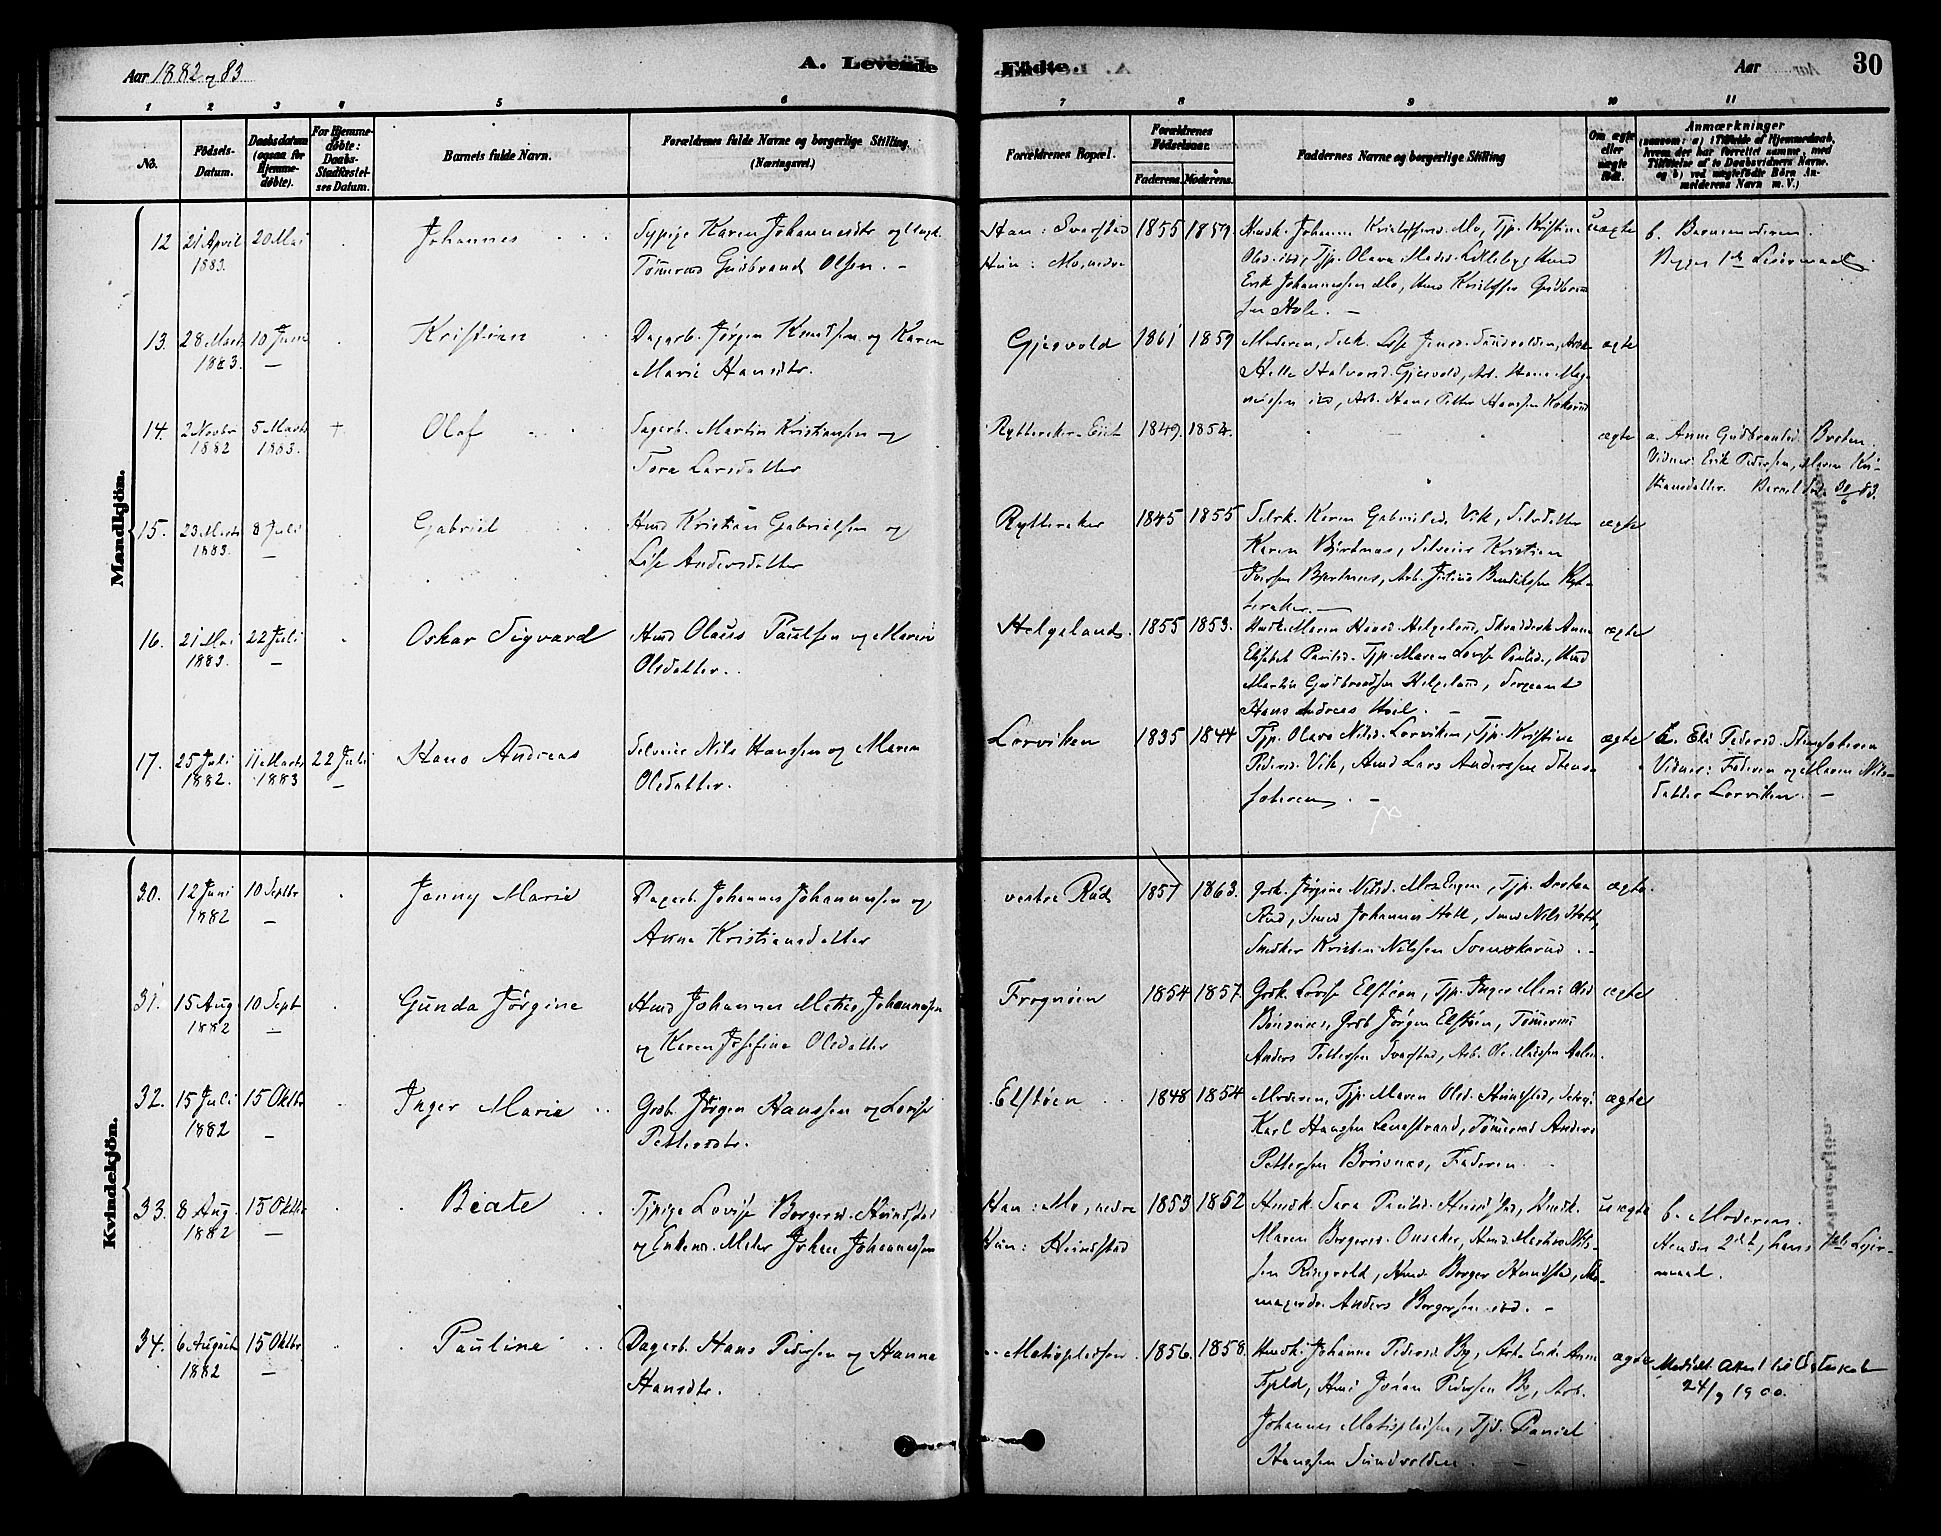 Aar 1882 og 83
A. Levende
Födte.
Aar
30
1 2 3 4 5 6 7 8 9 10 11
No.
Födsels-Datum.
Daabsdatum (ogsaa for Hjemmedöbte).
For Hjemmedöbte: Daabs-Stadfæstelses Datum.
Barnets fulde Navn.
Forældrenes fulde Navne og borgerlige Stilling. (Næringsvei.)
Forældrenes Bopæl.
Forældrenes Födselsaar.
Faderens. Moderens.
Faddernes Navne og borgerlige Stilling
Om ægte eller uægte födt.
Anmærkninger
(saasom: a) i Tilfælde af Hjemmedaab, hvem der har forrettet samme, med Tilföielse af to Daabsvidners Navne, og b) ved uægtefödte Börn Anmelderens Navn m. V.)
Mandkjön.
12 21 April 1883. 20 Mai
Johannes
Sypige Karen Johannesdtr og
Tømmermd Gudbrand Olsen.
Han: Svarstad
Hun: Mo, nedre
1855 1859
Husk. Johanne Kristoffersd. Mo, Tjp. Kristine
Olsd. ibd, Tjp. Olava Madsd. Lillebyg, Husmd
Erik Johannessen Mo, Husmd Kristoffer Gudbrand-
sen Hole.
uægte
b. Barnemoderen.
Begges 1ste Leiermaal.
13. 28 Marts 1883. 10 Juni
Kristian
Dagarb. Jørgen Knudsen og Karen
Marie Hansdtr.
Gjesvold
1861 1859
Moderen, Selk. Lise Jensd. Sundvolden, Arbk.
Helle Halvorsd. Gjesvold, Arb. Hans Mag-
nussen ibd, Arb. Hans Petter Hanssen
ægte
14. 2 Novbr 1882 5 Marts 1883. +
Olaf
Sagarb. Martin Kristiansen og
Tora Larsdatter
Rytteraker Eiet
1849. 1854.
ægte
a. Anne Gudbrandsd. Braten.
Vidner: Erik Pedersen, Maren Kri-
stiansdatter. Barnet død 30/6 83.
15. 23 Marts 1883. 8 Juli
Gabriel
Husmd Kristian Gabrielsen og
Lise Andersdatter
Rytteraker
1845 1855
Selvk. Karen Gabrielsd. Vik, Selvdatter
Karen Bjertnæs, Selveier Kristian
Iversen Bjertnæs, Arb. Julius Bendiksen Ryt-
teraker.
ægte
16. 21 Mai 1883. 22 Juli
Oskar Sigvard
Husmd Olaus Paulsen og Maren
Olsdatter.
Helgeland.
1855 1853.
Husk. Maren Hansd. Helgeland, Skræddersk Anne
Elisabet Paulsd. Tjp. Maren Lovise Paulsd., Husmd
Martin Gudbrandsen Helgeland, Sergeant
Hans Andreas Hvil.
ægte
17. 25 Juli 1882. 11 Marts 1883 22 Juli
Hans Andreas
Selveier Nils Hanssen og Maren
Olsdatter.
Lorviken
1835 1844
Tjp. Olava Nilsd. Lorviken, Tjp. Kristine
Pedersd. Vik, Husmd Lars Anderssen Stens-
sæteren.
ægte
a. Eli Pedersd. Stenssæteren
Vidner: Faderen og Maren Nils-
datter Lorviken.
Kvindekjön.
30. 12 Juni 1882 10 Septbr
Jenny Marie
Dagarb. Johannes Johannessen og
Anna Kristiansdatter
vestre Rud
1857 1863.
Gaardk. Jørgine Nilsd. Mo Engen, Tjp. Dortea
Rud, Smed Johannes Holt, Smed Nils Holt,
Snedker Kristen Nilssen Svenskerud.
ægte
31. 15 Aug 1882 10 Sept
Gunda Jørgine
Husmd Johannes Metius Johannessen
og Karen Josefine Olsdatter
Frognøen
1854 1857.
Grbk. Lovise Elstøen, Tjp. Inger Marie Olsd
Bønsnes, Grdb Jørgen Elstøen, Tømmermd
Anders Pettersen Svarstad, Arb. Ole Madssen
ægte
32. 15 Juli 1882 15 Oktbr
Inger Marie
Grdb. Jørgen Hanssen og Lovise
Pettersdtr.
Elstøen
1848 1854
Moderen, Tjp. Maren Olsd. Hundstad, Selvei.
Karl Hanssen Lenestrand, Tømmermd Anders
Pettersen Bønsnæs, Faderen.
ægte
33. 8 Aug. 1882 15 Oktbr
Beate
Tjpige Lovise Borgersd. Hundstad
og Enkemd. Møller Johan Johannessen
Han: Mo, nedre
Hun: Hundstad
1853 1852
Husmdk. Sara Paulsd. Hundstad, Husmdk.
Maren Borgersd. Onsaker, Husmd Martin Nils-
sen Ringvold, Husmd. Borger Hundstad, Sko-
magerdr. Anders Borgersen ibd.
uægte
b. Moderen.
Hendes 2det, hans 1ste Leier-
maal.
34. 6 August 1882 15 Oktbr
Pauline
Dagarb. Hans Pedersen og Hanna
Hansdtr.
Matispladsen
1856. 1858.
Husmdk. Johanne Pedersd By, Arb. Enke Anne
Fjeld, Husmd Johan Pedersen By, Arb.
Johannes Matispladsen, Tjd. Daniel
Hanssen Sundvolden.
ægte
Meddelt Attest
24/9 1900.